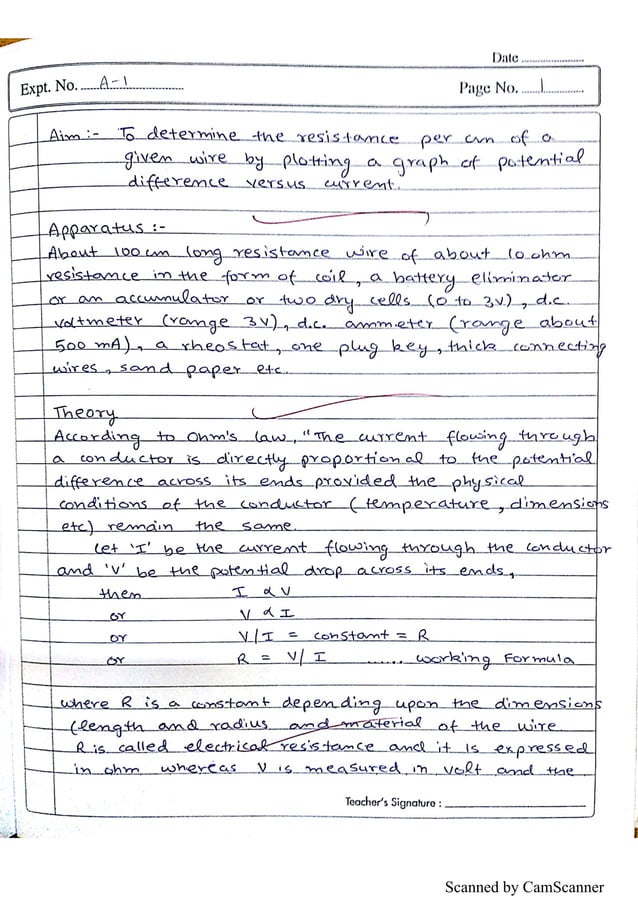 Date ....................
Expt. No. ......A-1..................
Page No. ......1..............
Aim :- To determine the resistance per cm of a
given wire by plotting a graph of potential
difference versus current.
Apparatus :-
About 100 cm long resistance wire of about 10 ohm
resistance in the form of coil, a battery eliminator
or an accumulator or two dry cells (0 to 3V), d.c.
voltmeter (range 3V), d.c. ammeter (range about
500 mA), a rheostat, one plug key, thick connecting
wires, sand paper etc.
Theory
According to Ohm's law, "The current flowing through
a conductor is directly proportional to the potential
difference across its ends provided the physical
conditions of the conductor (temperature, dimensions
etc) remain the same.
Let 'I' be the current flowing through the conductor
and 'V' be the potential drop across its ends,
then I ∝ V
or V ∝ I
or V/I = constant = R
or R = V/I ...... working Formula
where R is a constant depending upon the dimensions
(length and radius and material of the wire
R is called electrical resistance and it is expressed
in ohm whereas V is measured in volt and the
Teacher's Signature : ____________________
Scanned by CamScanner